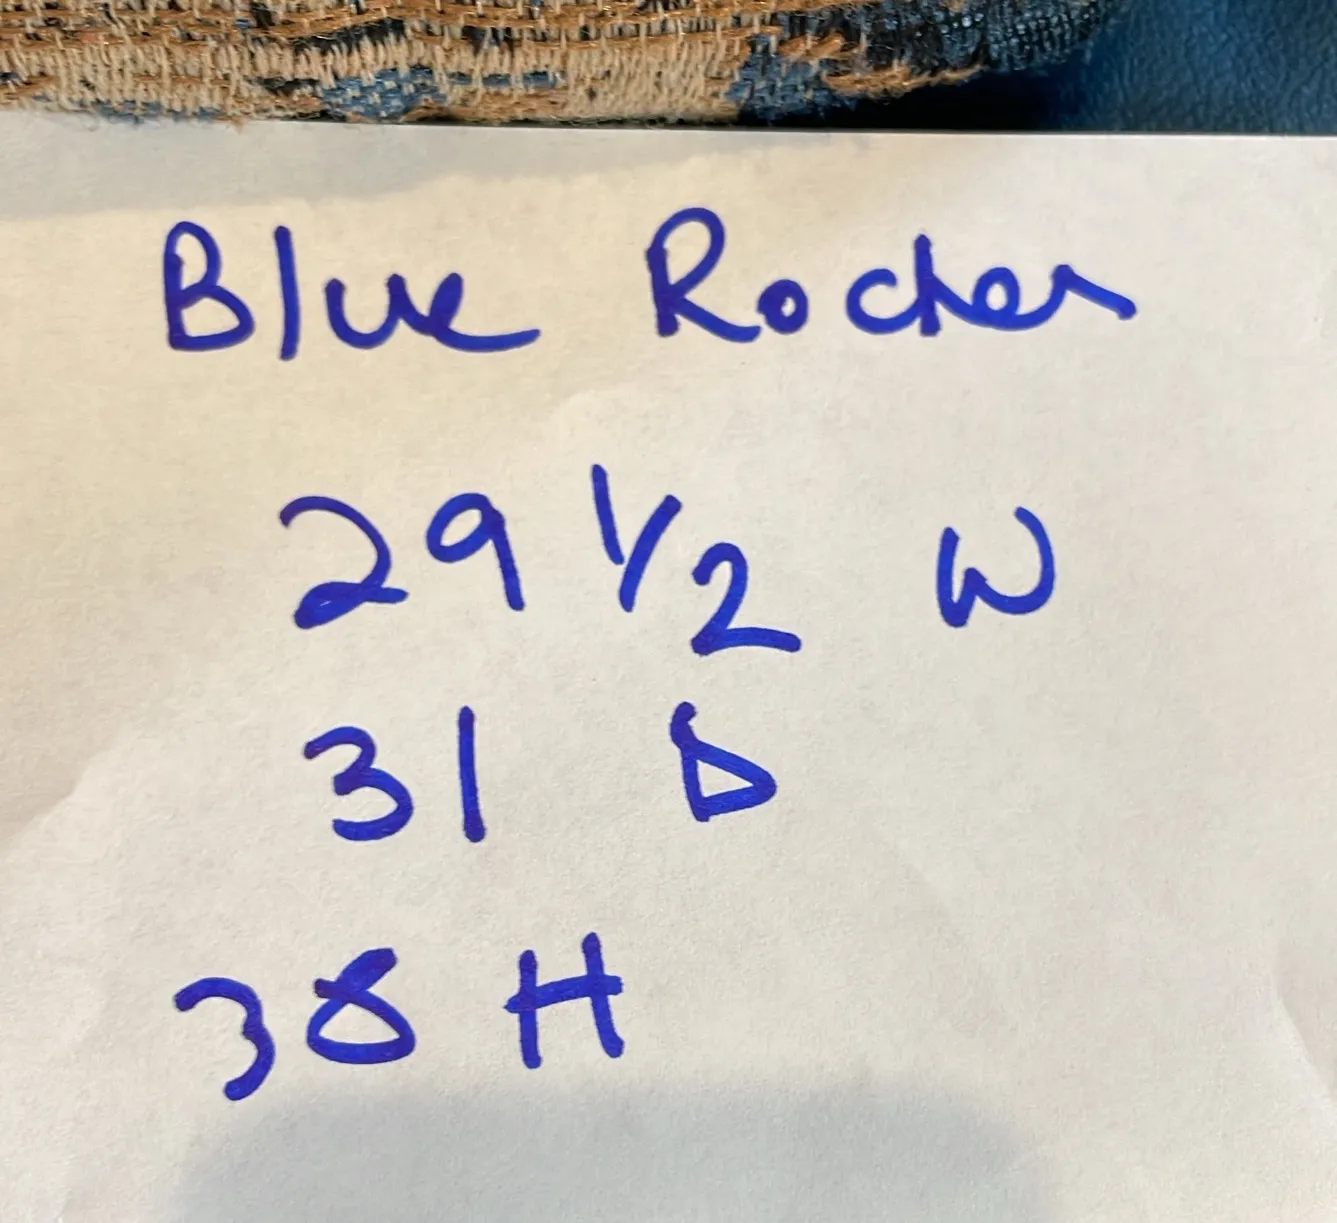 Blue Rocker
29 1/2 W
31 D
38 H